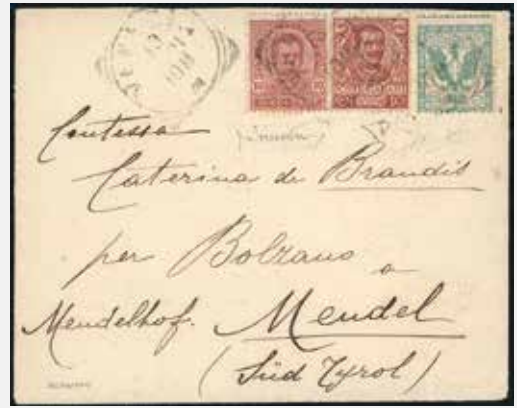 Contessa
Caterina de Brandis
per Bolzano
a
Mendelhof. Mendel
(Süd Tyrol)